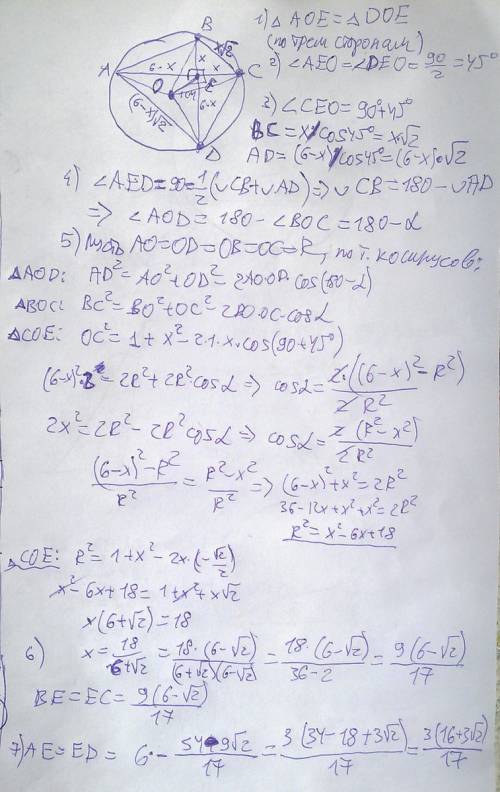 B
x√2
x
x
6-x
A
C
O
E
1
6-x
(6-x)√2
D
1) △AOE=△DOE
(по трем сторонам)
2) ∠AEO=∠DEO=90/2=45°
3) ∠CEO=90°+45°
BC=x/cos45°=x√2
AD=(6-x)/cos45°=(6-x)√2
4) ∠AED=90=1/2(∪CB+∪AD)⇒∪CB=180-∪AD
⇒ ∠AOD=180-∠BOC=180-α
5) Пусть AO=OD=OB=OC=R, по т. косинусов:
△AOD: AD²=AO²+OD²-2AO·OD·cos(180-α)
△BOC: BC²=BO²+OC²-2BO·OC·cosα
△COE: OC²=1+x²-2·1·x·cos(90+45°)
(6-x)²·2=2R²+2R²·cosα ⇒ cosα=2·((6-x)²-R²)/2R²
2x²=2R²-2R²cosα ⇒ cosα=2(R²-x²)/2R²
((6-x)²-R²)/R²=(R²-x²)/R² ⇒ (6-x)²+x²=2R²
36-12x+x²+x²=2R²
R²=x²-6x+18
△COE: R²=1+x²-2x·(-√2/2)
x²-6x+18=1+x²+x√2
x(6+√2)=18
6) x=18/(6+√2)=18·(6-√2)/((6+√2)(6-√2))=18·(6-√2)/(36-2)=9(6-√2)/17
BE=EC=9(6-√2)/17
7) AE=ED=6-(54-9√2)/17=3(34-18+3√2)/17=3(16+3√2)/17